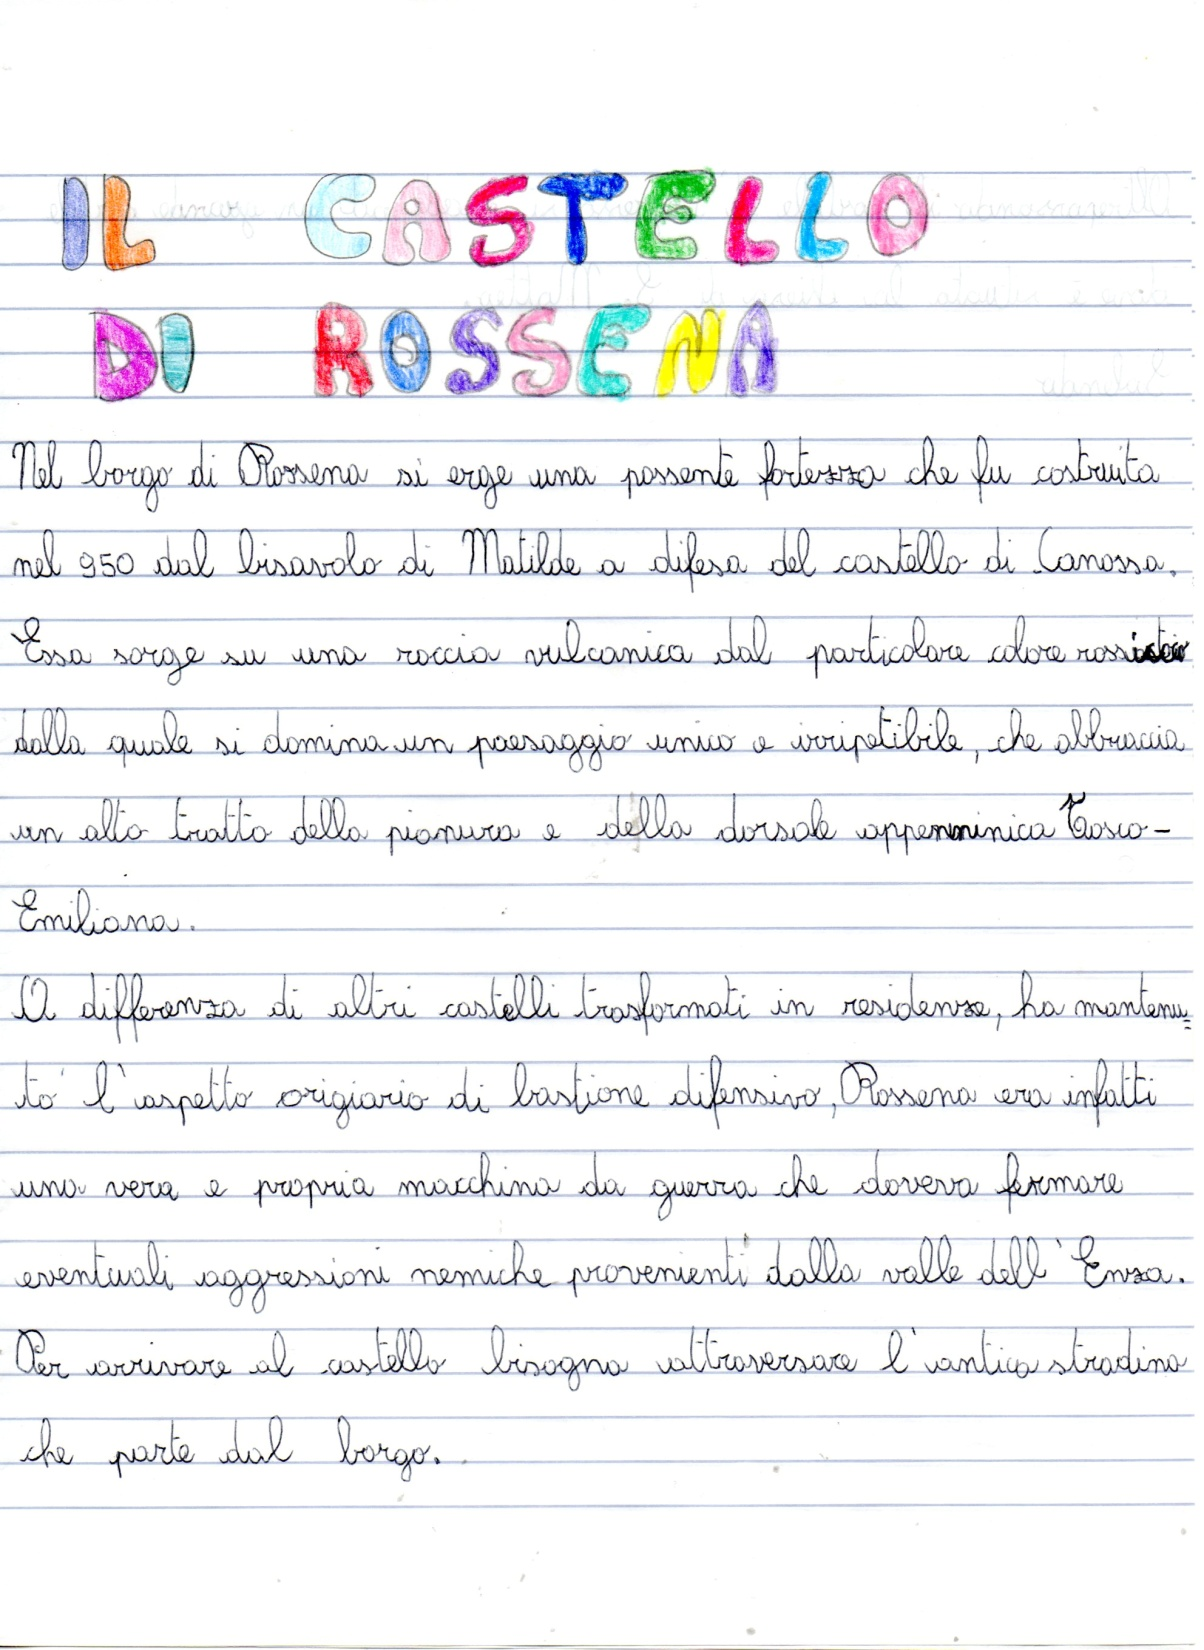 IL CASTELLO
DI ROSSENA
Nel borgo di Rossena si erge una possente fortezza che fu costruita
nel 950 dal bisavolo di Matilde a difesa del castello di Canossa.
Essa sorge su una roccia vulcanica dal particolare colore rossiccio
dalla quale si domina un paesaggio unico e irripetibile, che abbraccia
un alto tratto della pianura e della dorsale appenninica Tosco-
Emiliana.
A differenza di altri castelli trasformati in residenze, ha mantenu=
to l'aspetto origiario di bastione difensivo, Rossena era infatti
una vera e propria macchina da guerra che doveva fermare
eventuali aggressioni nemiche provenienti dalla valle dell'Enza.
Per arrivare al castello bisogna attraversare l'antica stradina
che parte dal borgo.